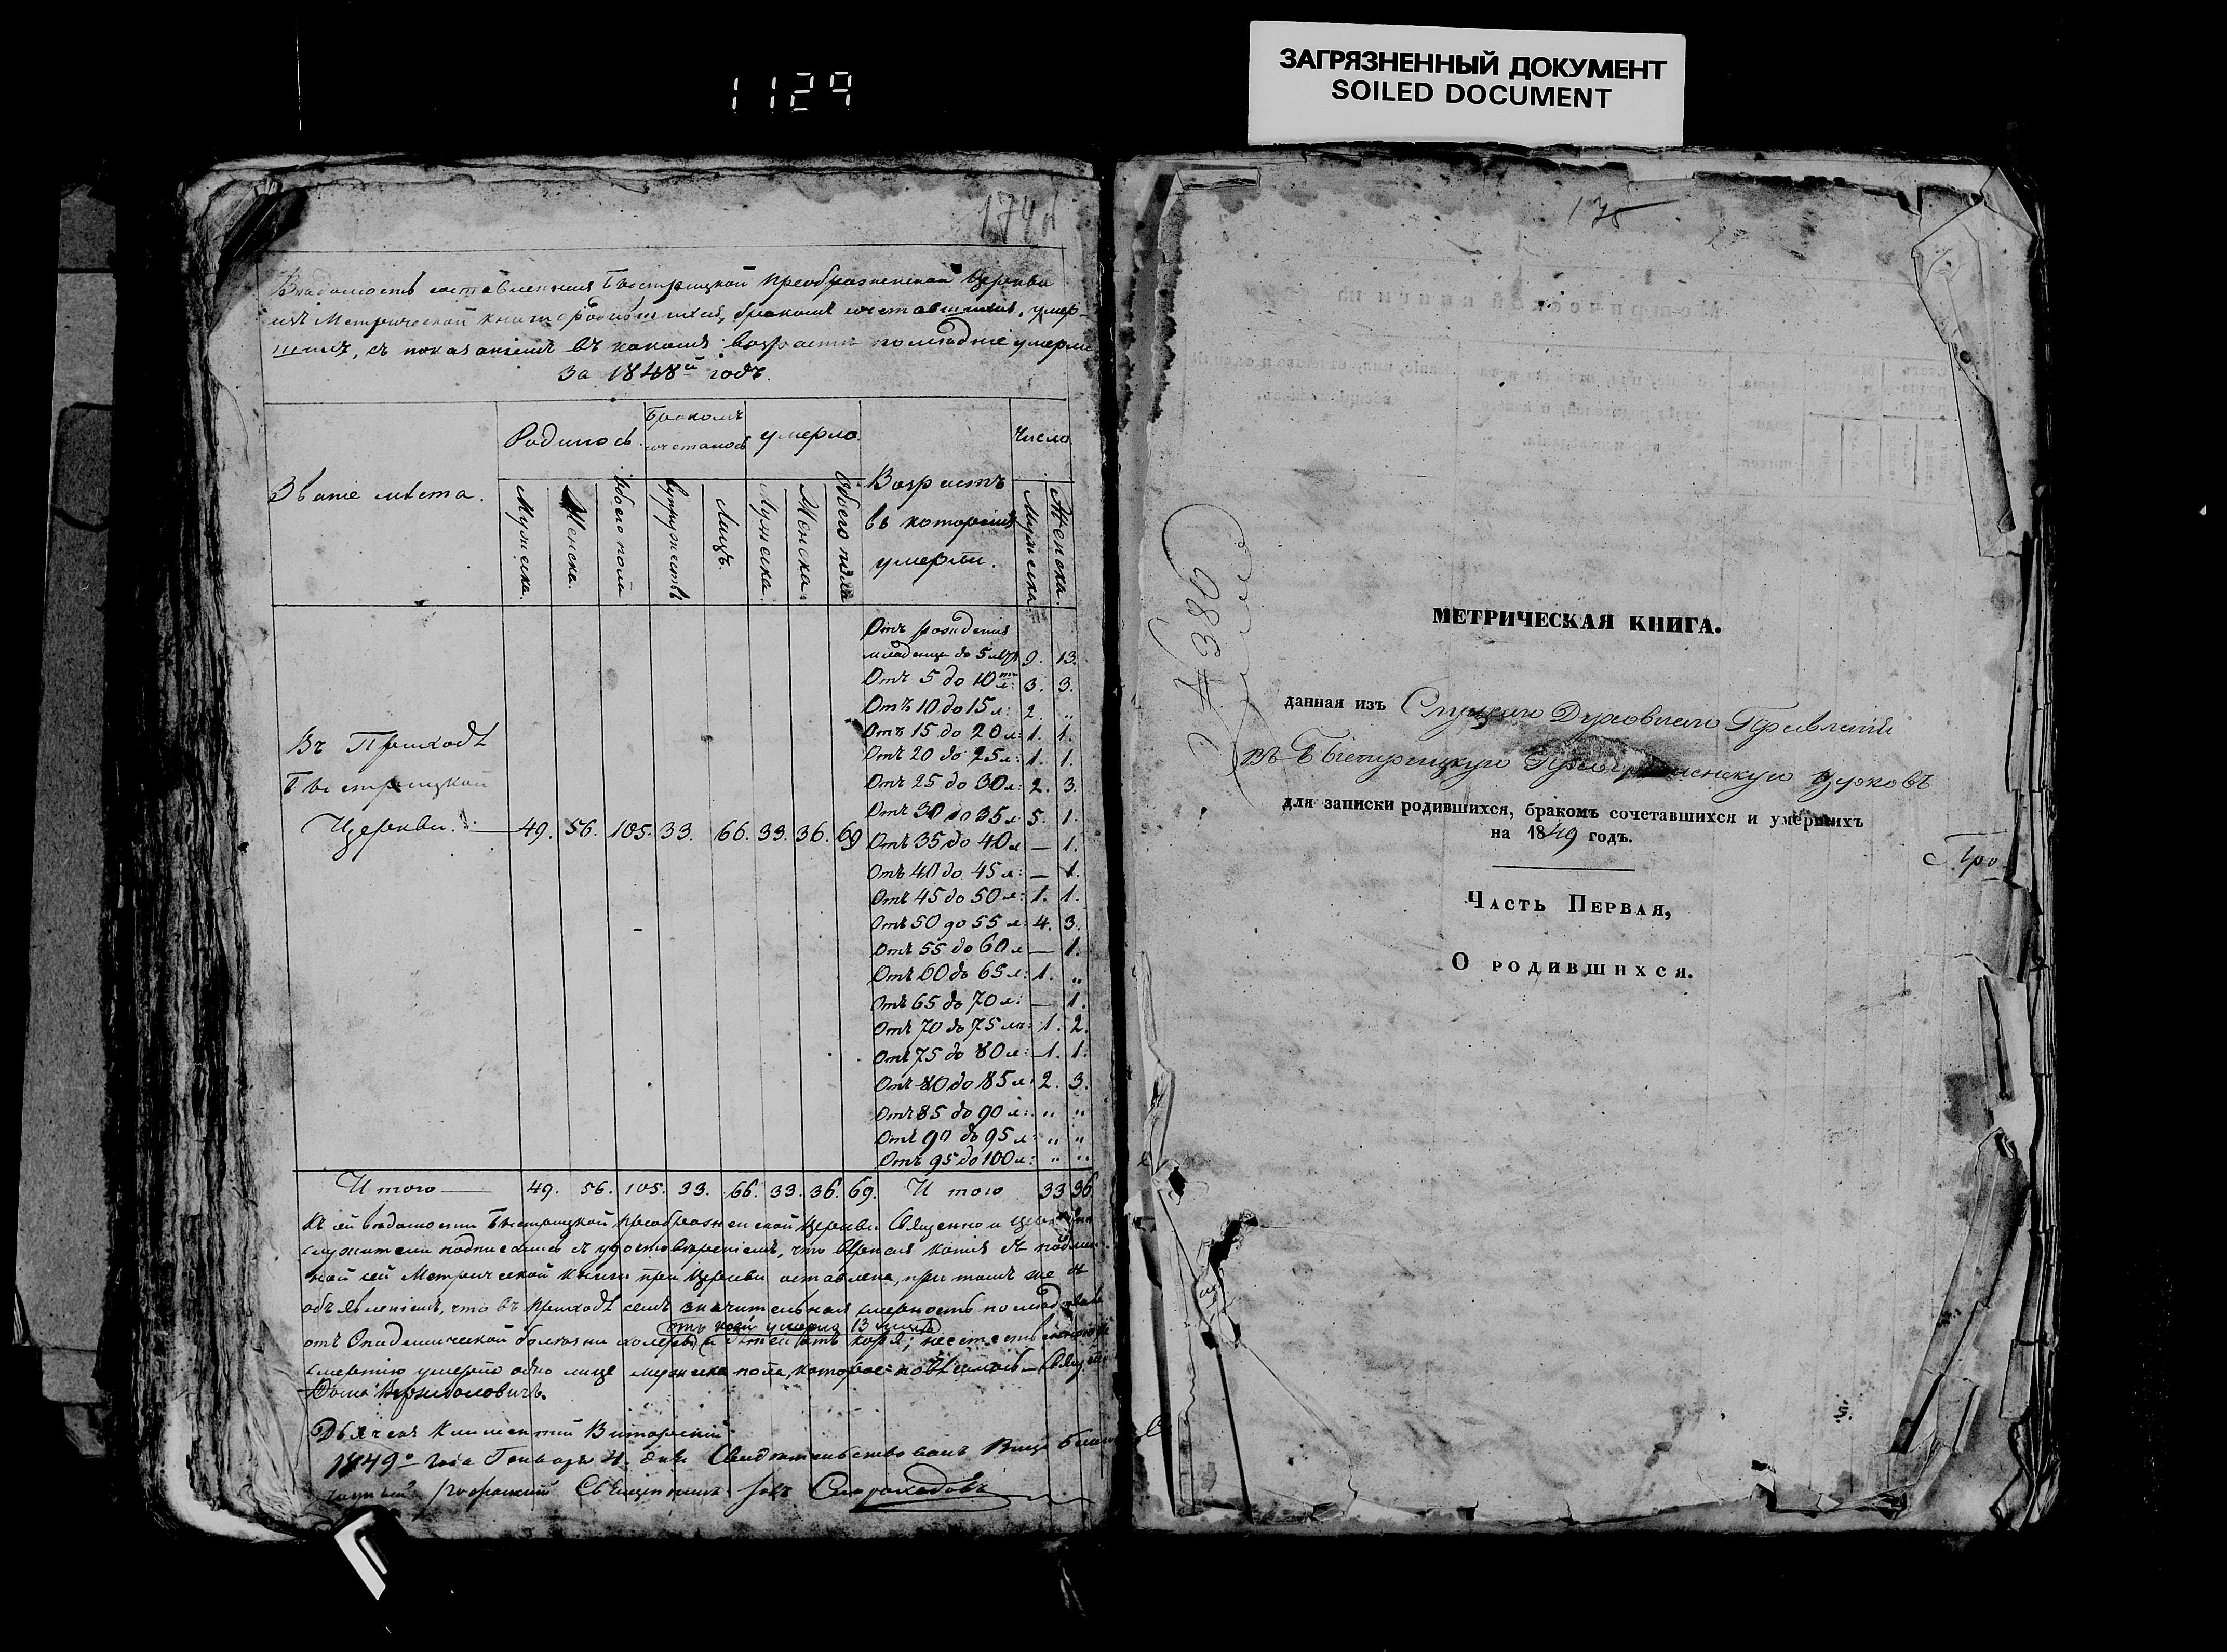 1129
ЗАГРЯЗНЕННЫЙ ДОКУМЕНТ
SOILED DOCUMENT
174
Вѣдомость составленная Быстрицкой Преображенской Церкви
изъ Метрической книги о родившихся, бракомъ сочетавшихся, умер-
шихъ, съ показаніемъ въ какомъ возрастѣ послѣдніе умерли
За 1848й годъ.
Званіе мѣста.
Родилось.
Бракомъ сочеталось
умерло.
Возрастъ въ которомъ умерли.
Число
Мужеска. Женска. Обоего пола Супружествъ Лицъ. Мужеска. Женска. Обоего пола Мужеска. Женска.
Отъ рожденія
младенца до 5 лѣтъ 9. 13.
Отъ 5 до 10 л: 3. 3.
Отъ 10 до 15 л: 2. „
Отъ 15 до 20 л: 1. 1.
Отъ 20 до 25 л: 1. 1.
Отъ 25 до 30 л: 2. 3.
Отъ 30 до 35 л 5. 1.
Въ Приходѣ
Быстрицкой
Церкви. — 49. 56. 105. 33. 66. 33. 36. 69
Отъ 35 до 40 л — 1.
Отъ 40 до 45 л: — 1.
Отъ 45 до 50 л: 1. 1.
Отъ 50 до 55 л: 4. 3.
Отъ 55 до 60 л — 1.
Отъ 60 до 65 л: 1. „
Отъ 65 до 70 л: — 1.
Отъ 70 до 75 л: 1. 2.
Отъ 75 до 80 л: 1. 1.
Отъ 80 до 85 л: 2. 3.
Отъ 85 до 90 л: „ „
Отъ 90 до 95 л: „ „
Отъ 95 до 100 л: „ „
Итого — 49. 56. 105. 33. 66. 33. 36. 69. Итого 33 36
Къ сей вѣдомости Быстрицкой Преображенской Церкви Священно и
служители подписались съ удостовѣреніемъ, что вѣрная копія съ
ной сей Метрической книги при Церкви оставлена, при томъ же и
объявленіемъ, что въ приходѣ семъ значительная смерность
отъ коей умерло 13 лицъ
отъ Эпидемической болѣзни холеры, а дѣтей отъ коря;
смертію умерло одно лице мужеска пола, которое повѣсилось —
Фома
Дьячекъ Климентій
1849о года Генваря 4 дня Свидѣтельствовалъ
175
МЕТРИЧЕСКАЯ КНИГА.
данная изъ Слуцкаго Духовнаго Правленія
въ Быстрицкую Преображенскую Церковь
для записки родившихся, бракомъ сочетавшихся и умершихъ
на 1849 годъ.
Про
Часть Первая,
О родившихся.